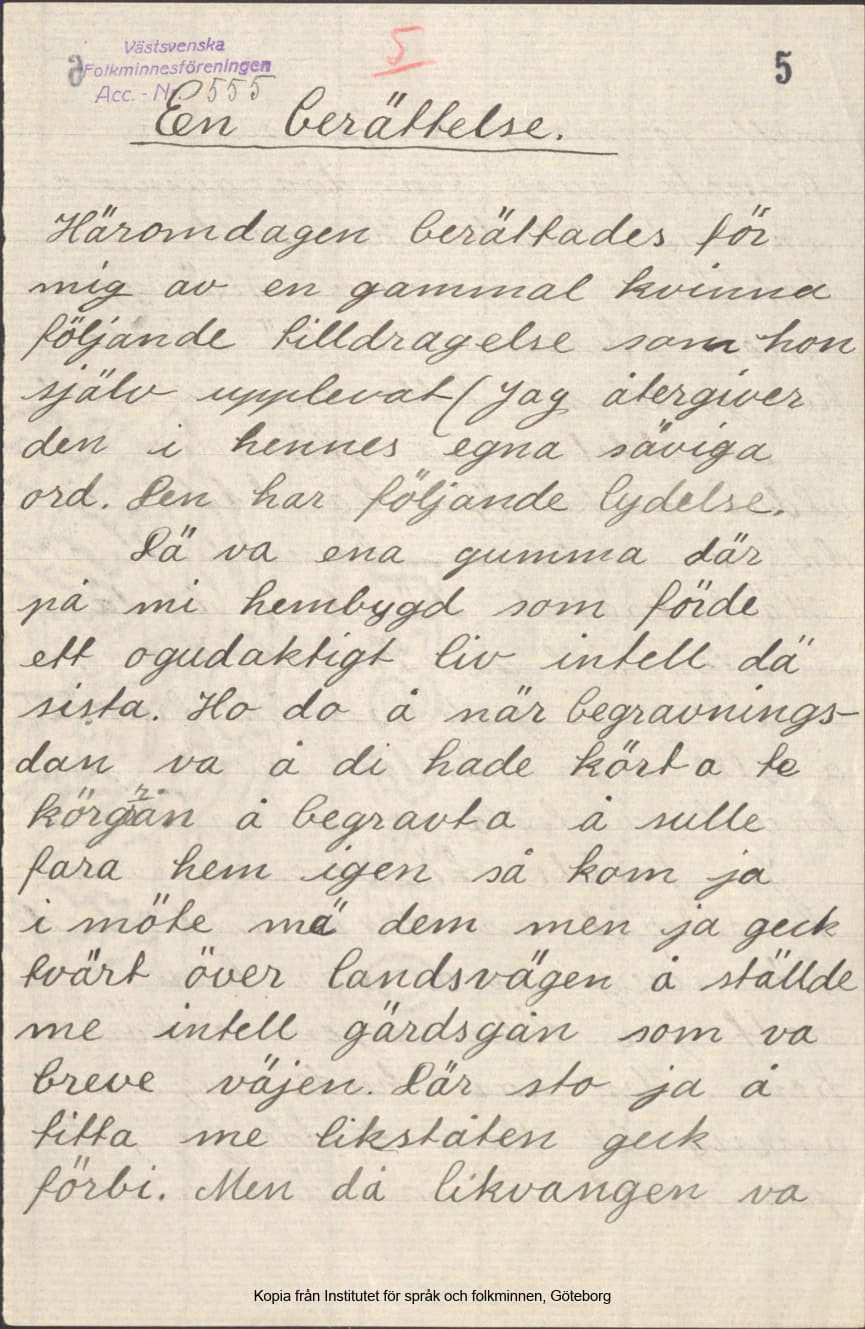 Västsvenska
Folkminnesföreningen
Acc. - Nr 555
5
5
En berättelse.
Häromdagen berättades för
mig av en gammal kvinna
följande tilldragelse som hon
själv upplevat (Jag återgiver
den i hennes egna säviga
ord. Den har följande lydelse.
Dä va ena gumma där
på mi hembygd som förde
ett ogudaktigt liv intell dä
sista. Ho do å när begravnings-
dan va å di hade kört a te
körgrån å begravt a å sulle
fara hem igen så kom ja
i möte mä dem men ja geck
tvärt över landsvägen å ställde
me intell gärdsgån som va
breve väjen. Där sto ja å
titta me likståten geck
förbi. Men då likvangen va
Kopia från Institutet för språk och folkminnen, Göteborg